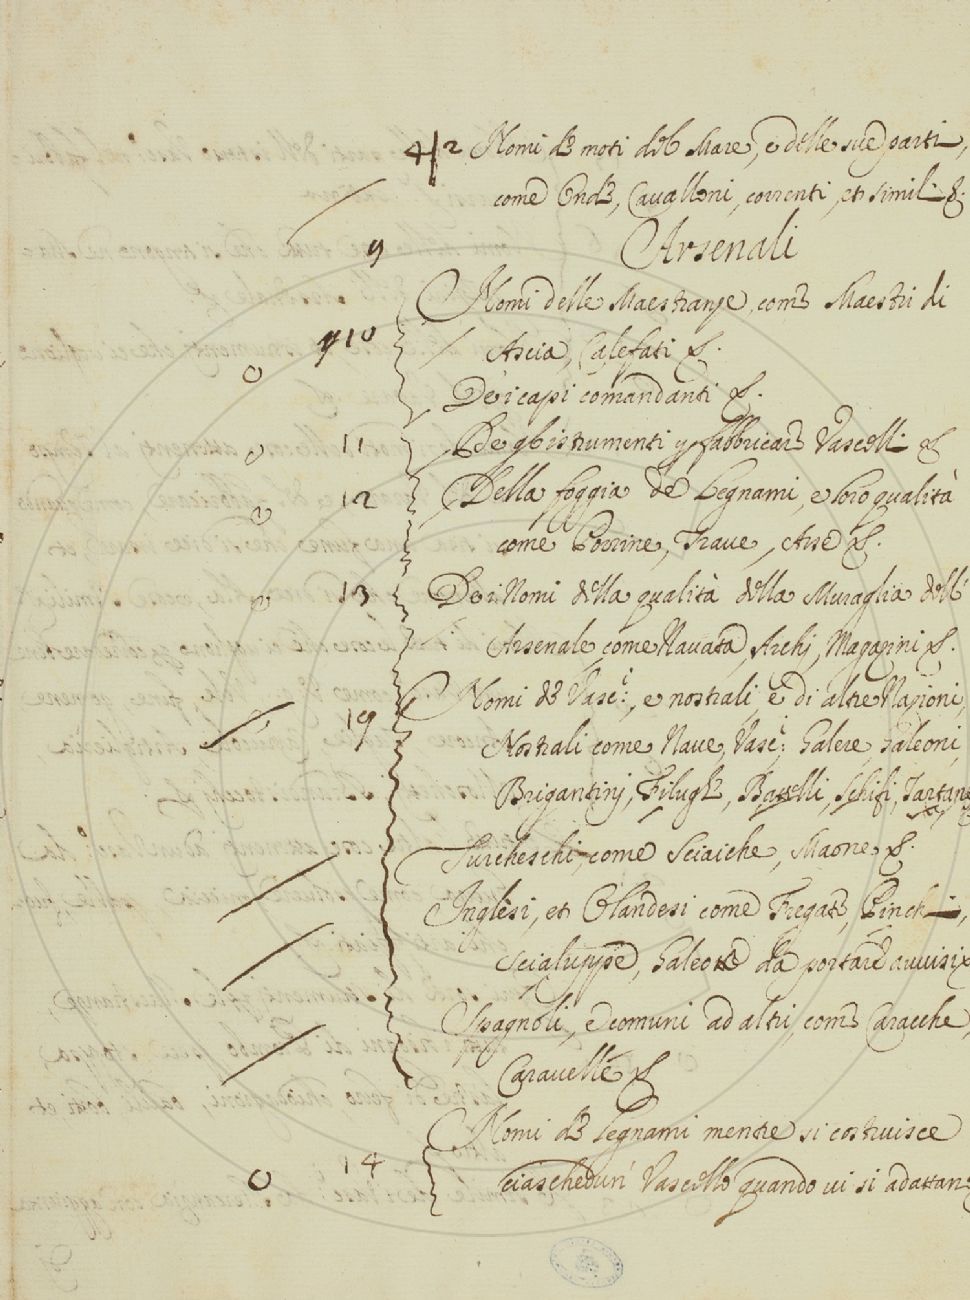 4 2 Nomi de moti del Mare, e delle sue parti,
come Onde, Cavalloni, correnti, et simili &.
9 Arsenali
Nomi delle Maestranze, come Maestri di
10 Ascia, Calefati &.
Dei capi comandanti &.
11 Degl'istrumenti p fabbricare Vascelli &
12 Della foggia de Legnami, e loro qualità
come Trave, Asse &.
13 Dei Nomi della qualità della Muraglia dell'
Arsenale, come Navata, Archi, Magazini &.
Nomi de Vasc:i, e nostrali, e di altre Nazioni,
19 Nostrali come Nave, Vasc:i Galere, Galeoni,
Brigantini, Filughe, Battelli, Schifi, Tartane
Turcheschi, come Sciaiche, Maone &.
Inglesi, et Olandesi come Fregate, Pinchi,
Scialuppe, Galeotte da portare avvisi
Spagnoli, e comuni ad altri, come Caracche,
Caravelle &
Nomi de Legnami mentre si costruisce
14 ciaschedun' Vascello quando vi si adattano